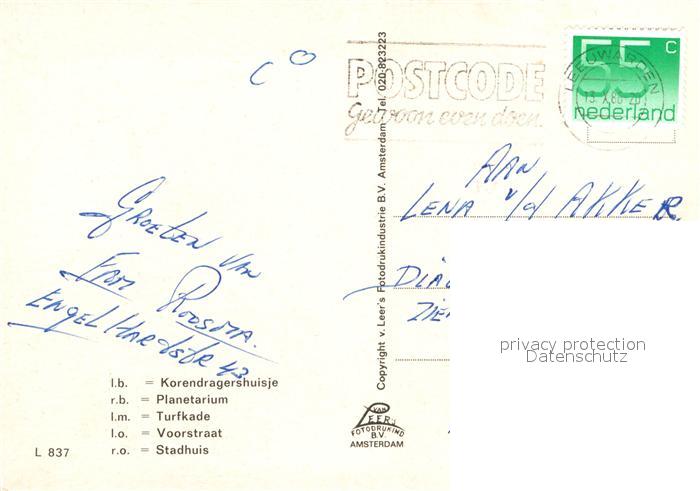 POSTCODE
Gewoon even doen.
LEEUWARDEN
55 c
nederland
Groeten van
Fam Roosma.
Engelhardtstr 43
l.b. = Korendragershuisje
r.b. = Planetarium
l.m. = Turfkade
l.o. = Voorstraat
r.o. = Stadhuis
L 837
Copyright v. Leer's Fotodrukindustrie B.V. Amsterdam - Tel. 020-823223
VAN
LEER's
FOTODRUKIND
B.V.
AMSTERDAM
AAN
LENA v/d AKKER.
privacy protection
Datenschutz